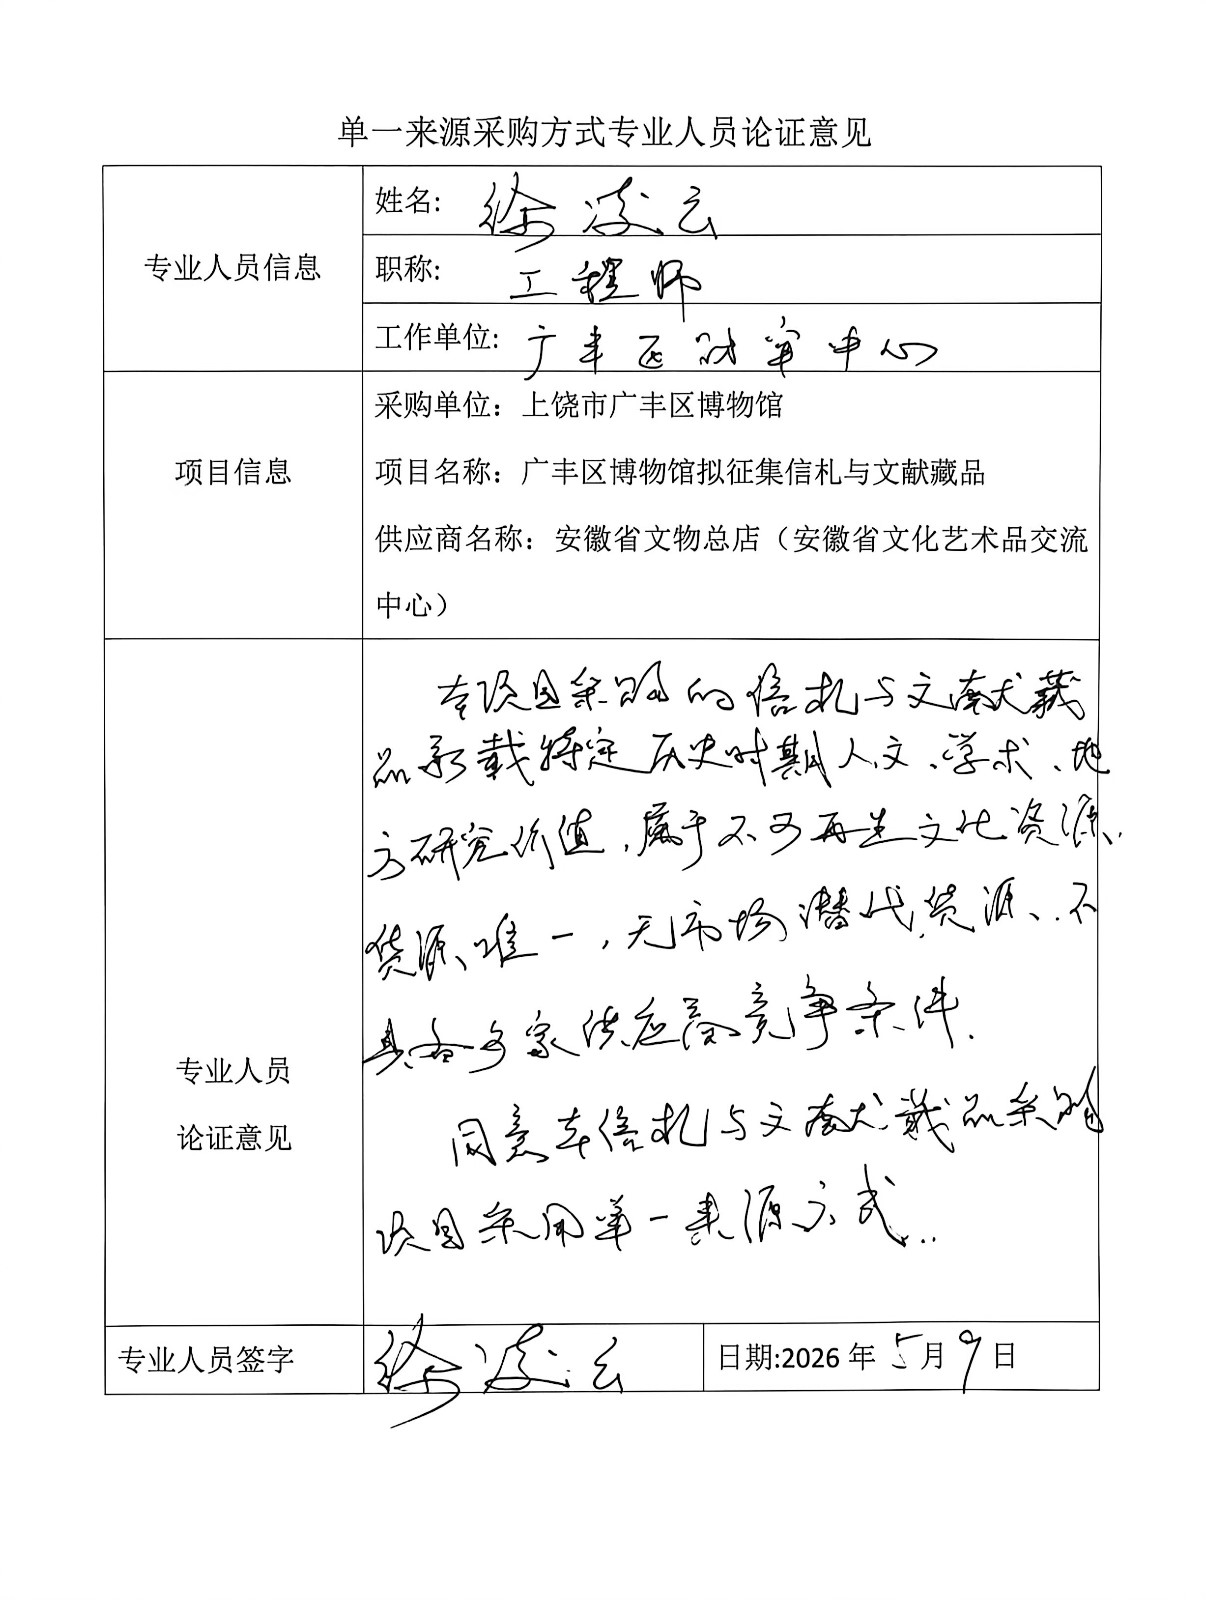 单一来源采购方式专业人员论证意见
专业人员信息
姓名: 徐凌云
职称: 工程师
工作单位: 广丰区财审中心
项目信息
采购单位：上饶市广丰区博物馆
项目名称：广丰区博物馆拟征集信札与文献藏品
供应商名称：安徽省文物总店（安徽省文化艺术品交流
中心）
专业人员
论证意见
本项目采购的信札与文献藏
品承载特定历史时期人文、学术、地
方研究价值，属于不可再生文化资源、
货源唯一，无市场潜代货源、不
具备多家供应商竞争条件.
同意本信札与文献藏品采购
项目采用单一来源方式..
专业人员签字
徐凌云
日期:2026 年 5 月 9 日